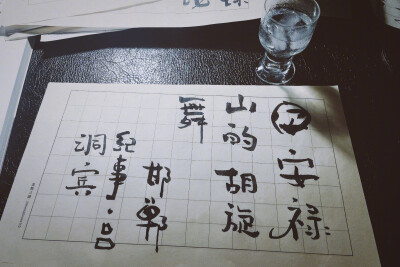 安禄
山的胡旋
舞
邯郸
纪事·吕
洞宾